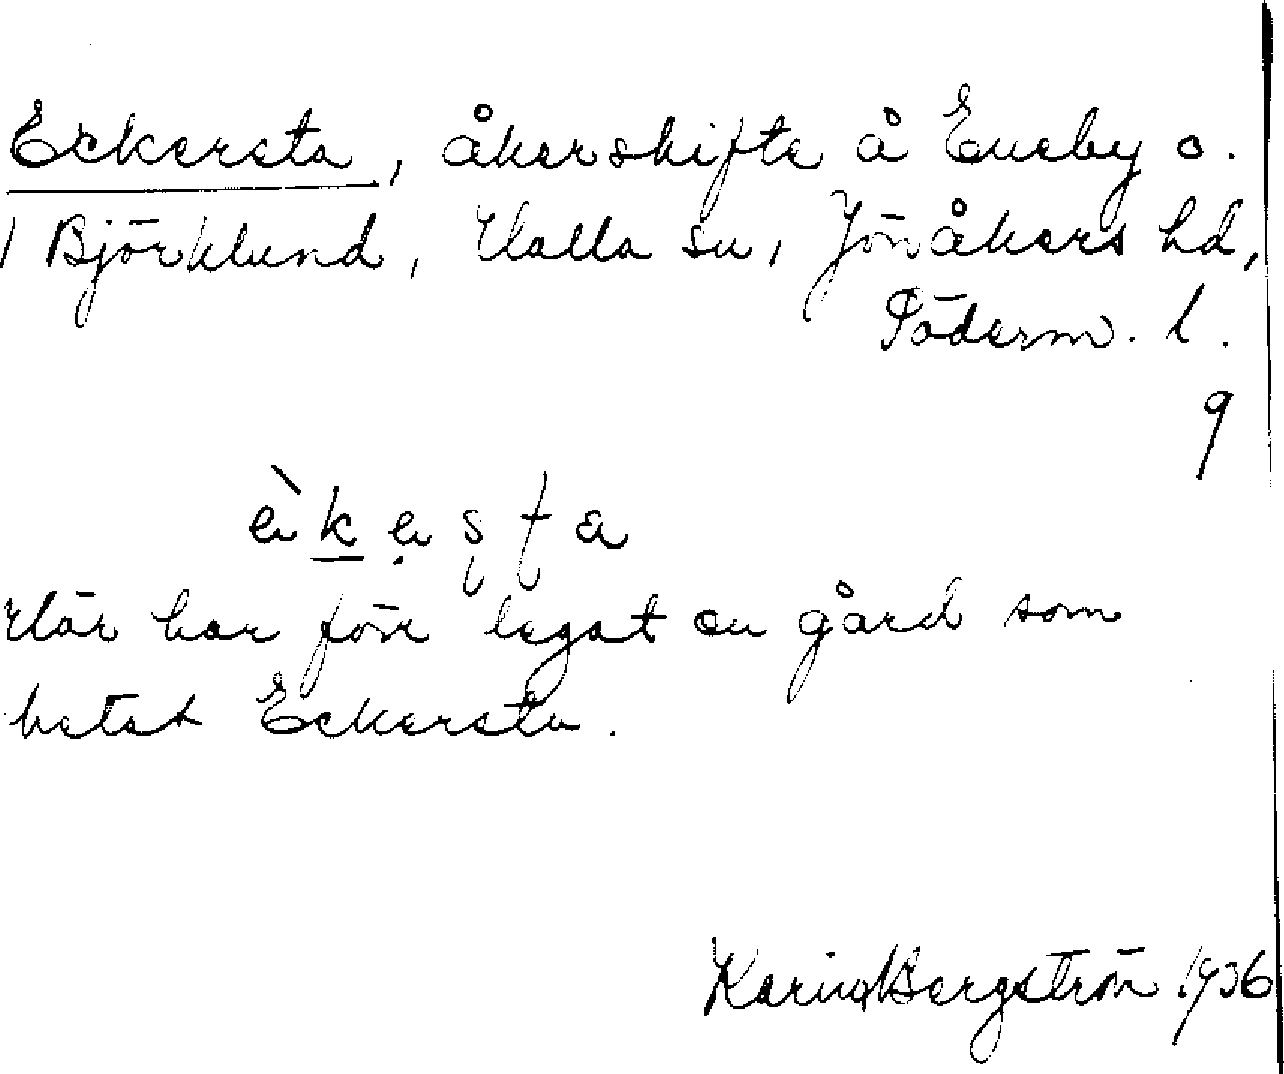 Eckersta, åkerskifte å Eneby o.
Björklund, Halla sn, Jönåkers hd,
Söderm. l.
9
èkesta
Här har förr legat en gård som
hetat Eckersta.
Karin Bergström 1936